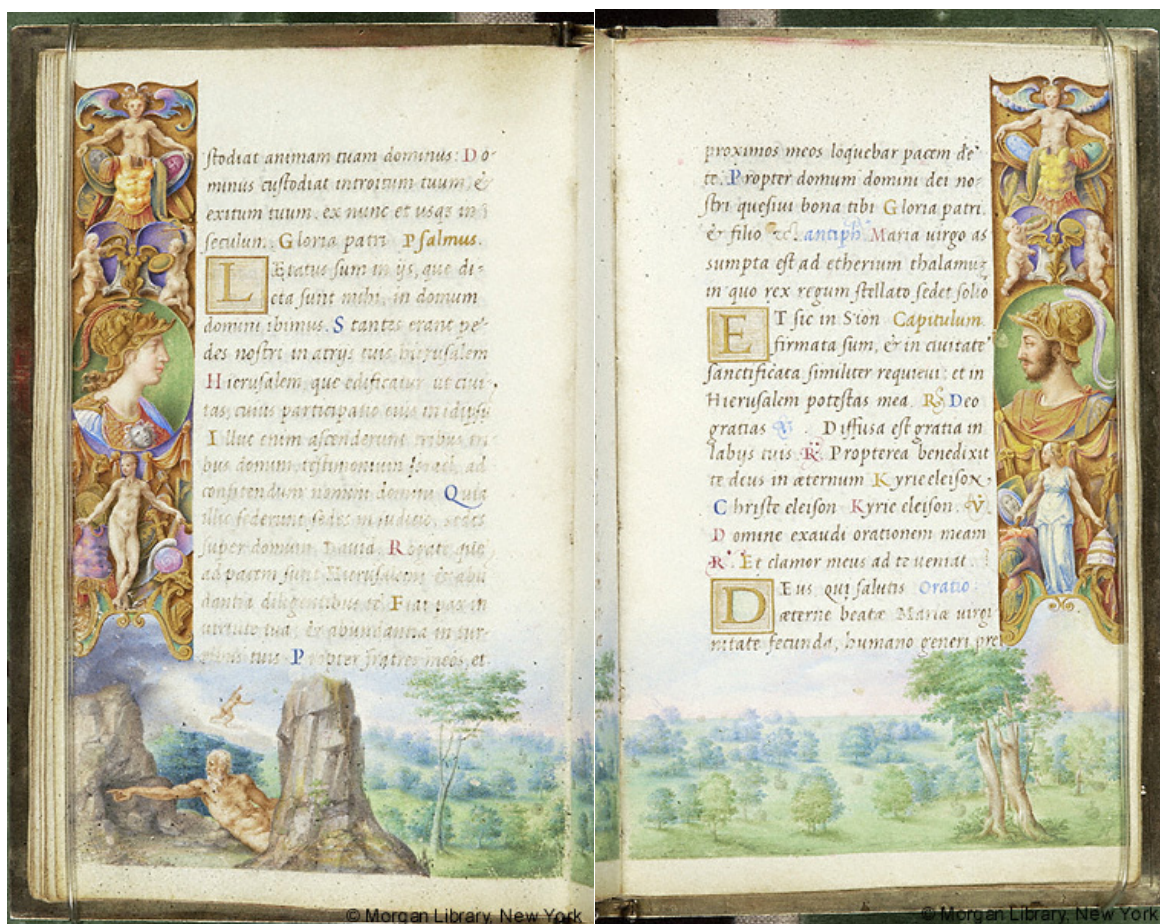 ſtodiat animam tuam dominus: Do
minus cuſtodiat introitum tuum &
exitum tuum. ex nunc et usqȝ in
ſeculun. Gloria patri Pſalmus.
LÆtatus ſum in ijs, que di-
cta ſunt mihi, in domum
domini ibimus. Stantes erant pe-
des noſtri in atrijs tuis hieruſalem
Hieruſalem, que edificatur ut ciui
tas, cuius participatio euis in idipſū
Illuc enim aſcenderunt tribus, tri
bus domini, teſtimonium Iſrael, ad
confitendum nomini domini Quia
illic ſederunt ſedes in iudicio, ſedes
ſuper domum Dauid. Rogate que
ad pacem ſunt Hieruſalem, & abū
dantia diligentibus te Fiat pax in
uirtute tua, & abundantia in tur-
ribus tuis Propter fratres meos, et
proximos meos loquebar pacem de
te. Propter domum domini dei no-
ſtri queſiui bona tibi Gloria patri.
& filio &c. antiph Maria uirgo as
sumpta eſt ad etherium thalamuȝ
in quo rex regum ſtellato ſedet ſolio
ET ſic in Sion Capitulum
firmata ſum, & in ciuitate
ſanctificata ſimiliter requieui: et in
Hieruſalem poteſtas mea. R̃ Deo
gratias V. Diffusa eſt gratia in
labijs tuis R̃ Propterea benedixit
te deus in æternum Kyrie eleiſon,
Chriſte eleiſon Kyrie eleiſon. V.
Domine exaudi orationem meam
R̃. Et clamor meus ad te ueniat
DEus qui ſalutis Oratio
æterne beatæ Mariæ uirgi
nitate fecunda, humano generi pre
© Morgan Library, New York
© Morgan Library, New York